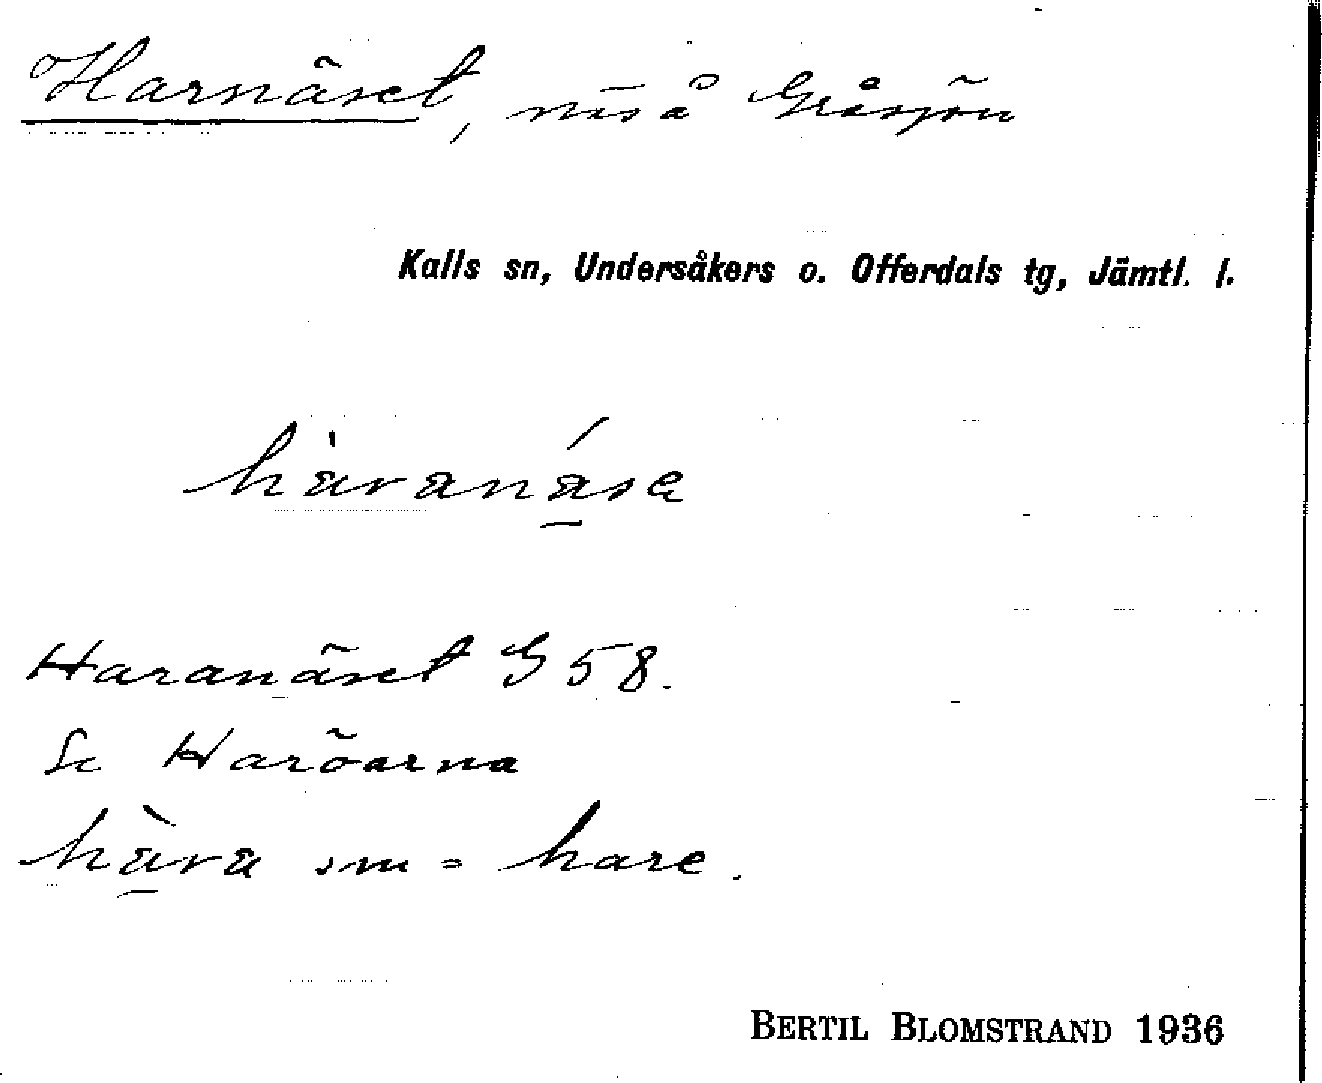 Harnäset, näs å Gråsjön
Kalls sn, Undersåkers o. Offerdals tg, Jämtl. l.
hàranása
Haranäset G 58.
Se Haröarna
hàra sm = hare.
BERTIL BLOMSTRAND 1936